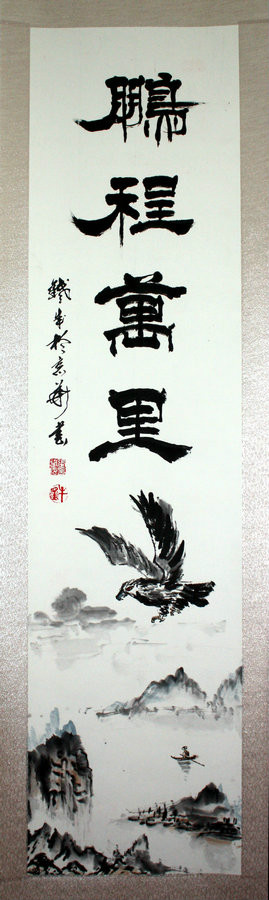 鵬程萬里
鐵牛於京華書